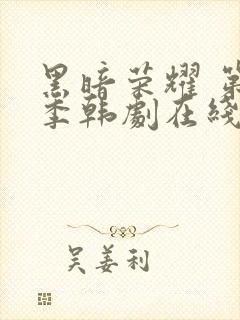 黑暗荣耀 第
季韩劇在綫
吴姜利